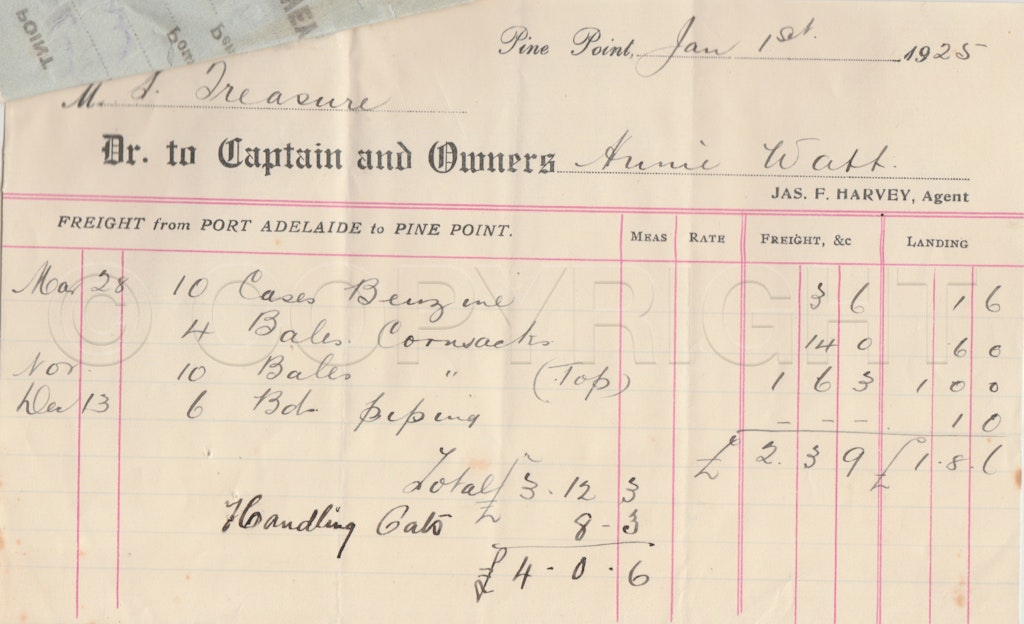 POINT
Pine Point, Jan 1st. 1925
M. S. Treasure
Dr. to Captain and Owners Annie Watt.
JAS. F. HARVEY, Agent
FREIGHT from PORT ADELAIDE to PINE POINT. MEAS RATE FREIGHT, &c LANDING
Mar 28 10 Cases Benzine 3 6 1 6
4 Bales. Cornsacks 14 0 6 0
Nov. 10 Bales " (Top) 1 6 3 1 0 0
Dec 13 6 Bd. piping - - - 1 0
£ 2. 3 9 £ 1. 8. 6
Total £ 3. 12 3
Handling Oats 8 - 3
£ 4 - 0 . 6
© COPYRIGHT